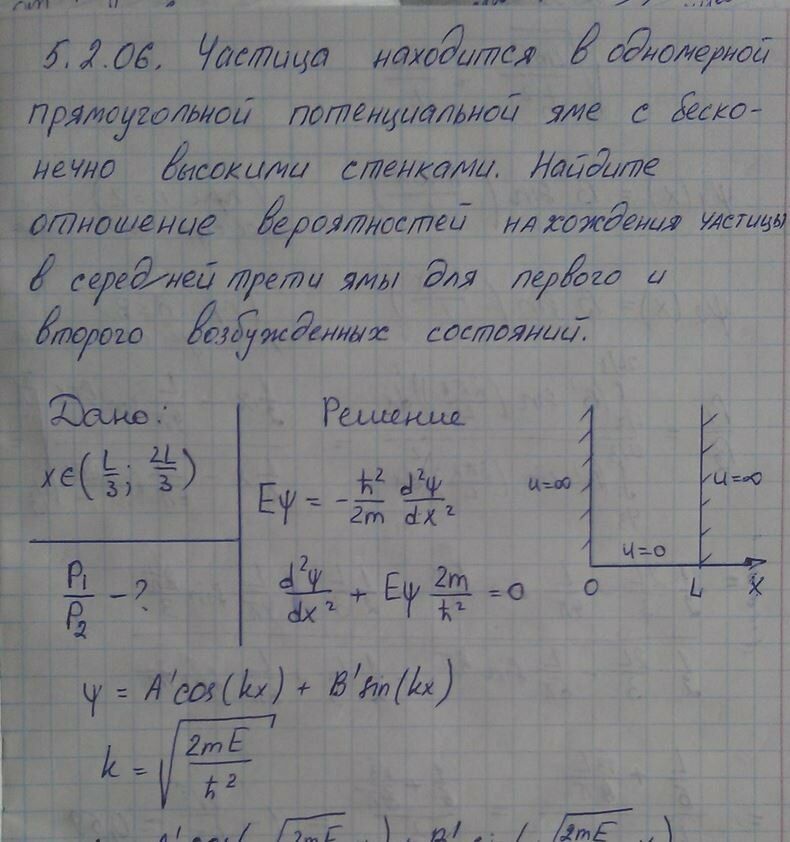 5.2.06. Частица находится в одномерной
прямоугольной потенциальной яме с беско-
нечно высокими стенками. Найдите
отношение вероятностей нахождения частицы
в средней трети ямы для первого и
второго возбужденных состояний.
Дано:
x∈(L/3; 2L/3)
P₁/P₂ - ?
Решение
Eψ = -ħ²/2m d²ψ/dx²
d²ψ/dx² + Eψ 2m/ħ² = 0
u=∞
u=0
u=∞
0 L x
ψ = A'cos(kx) + B'sin(kx)
k = √(2mE/ħ²)